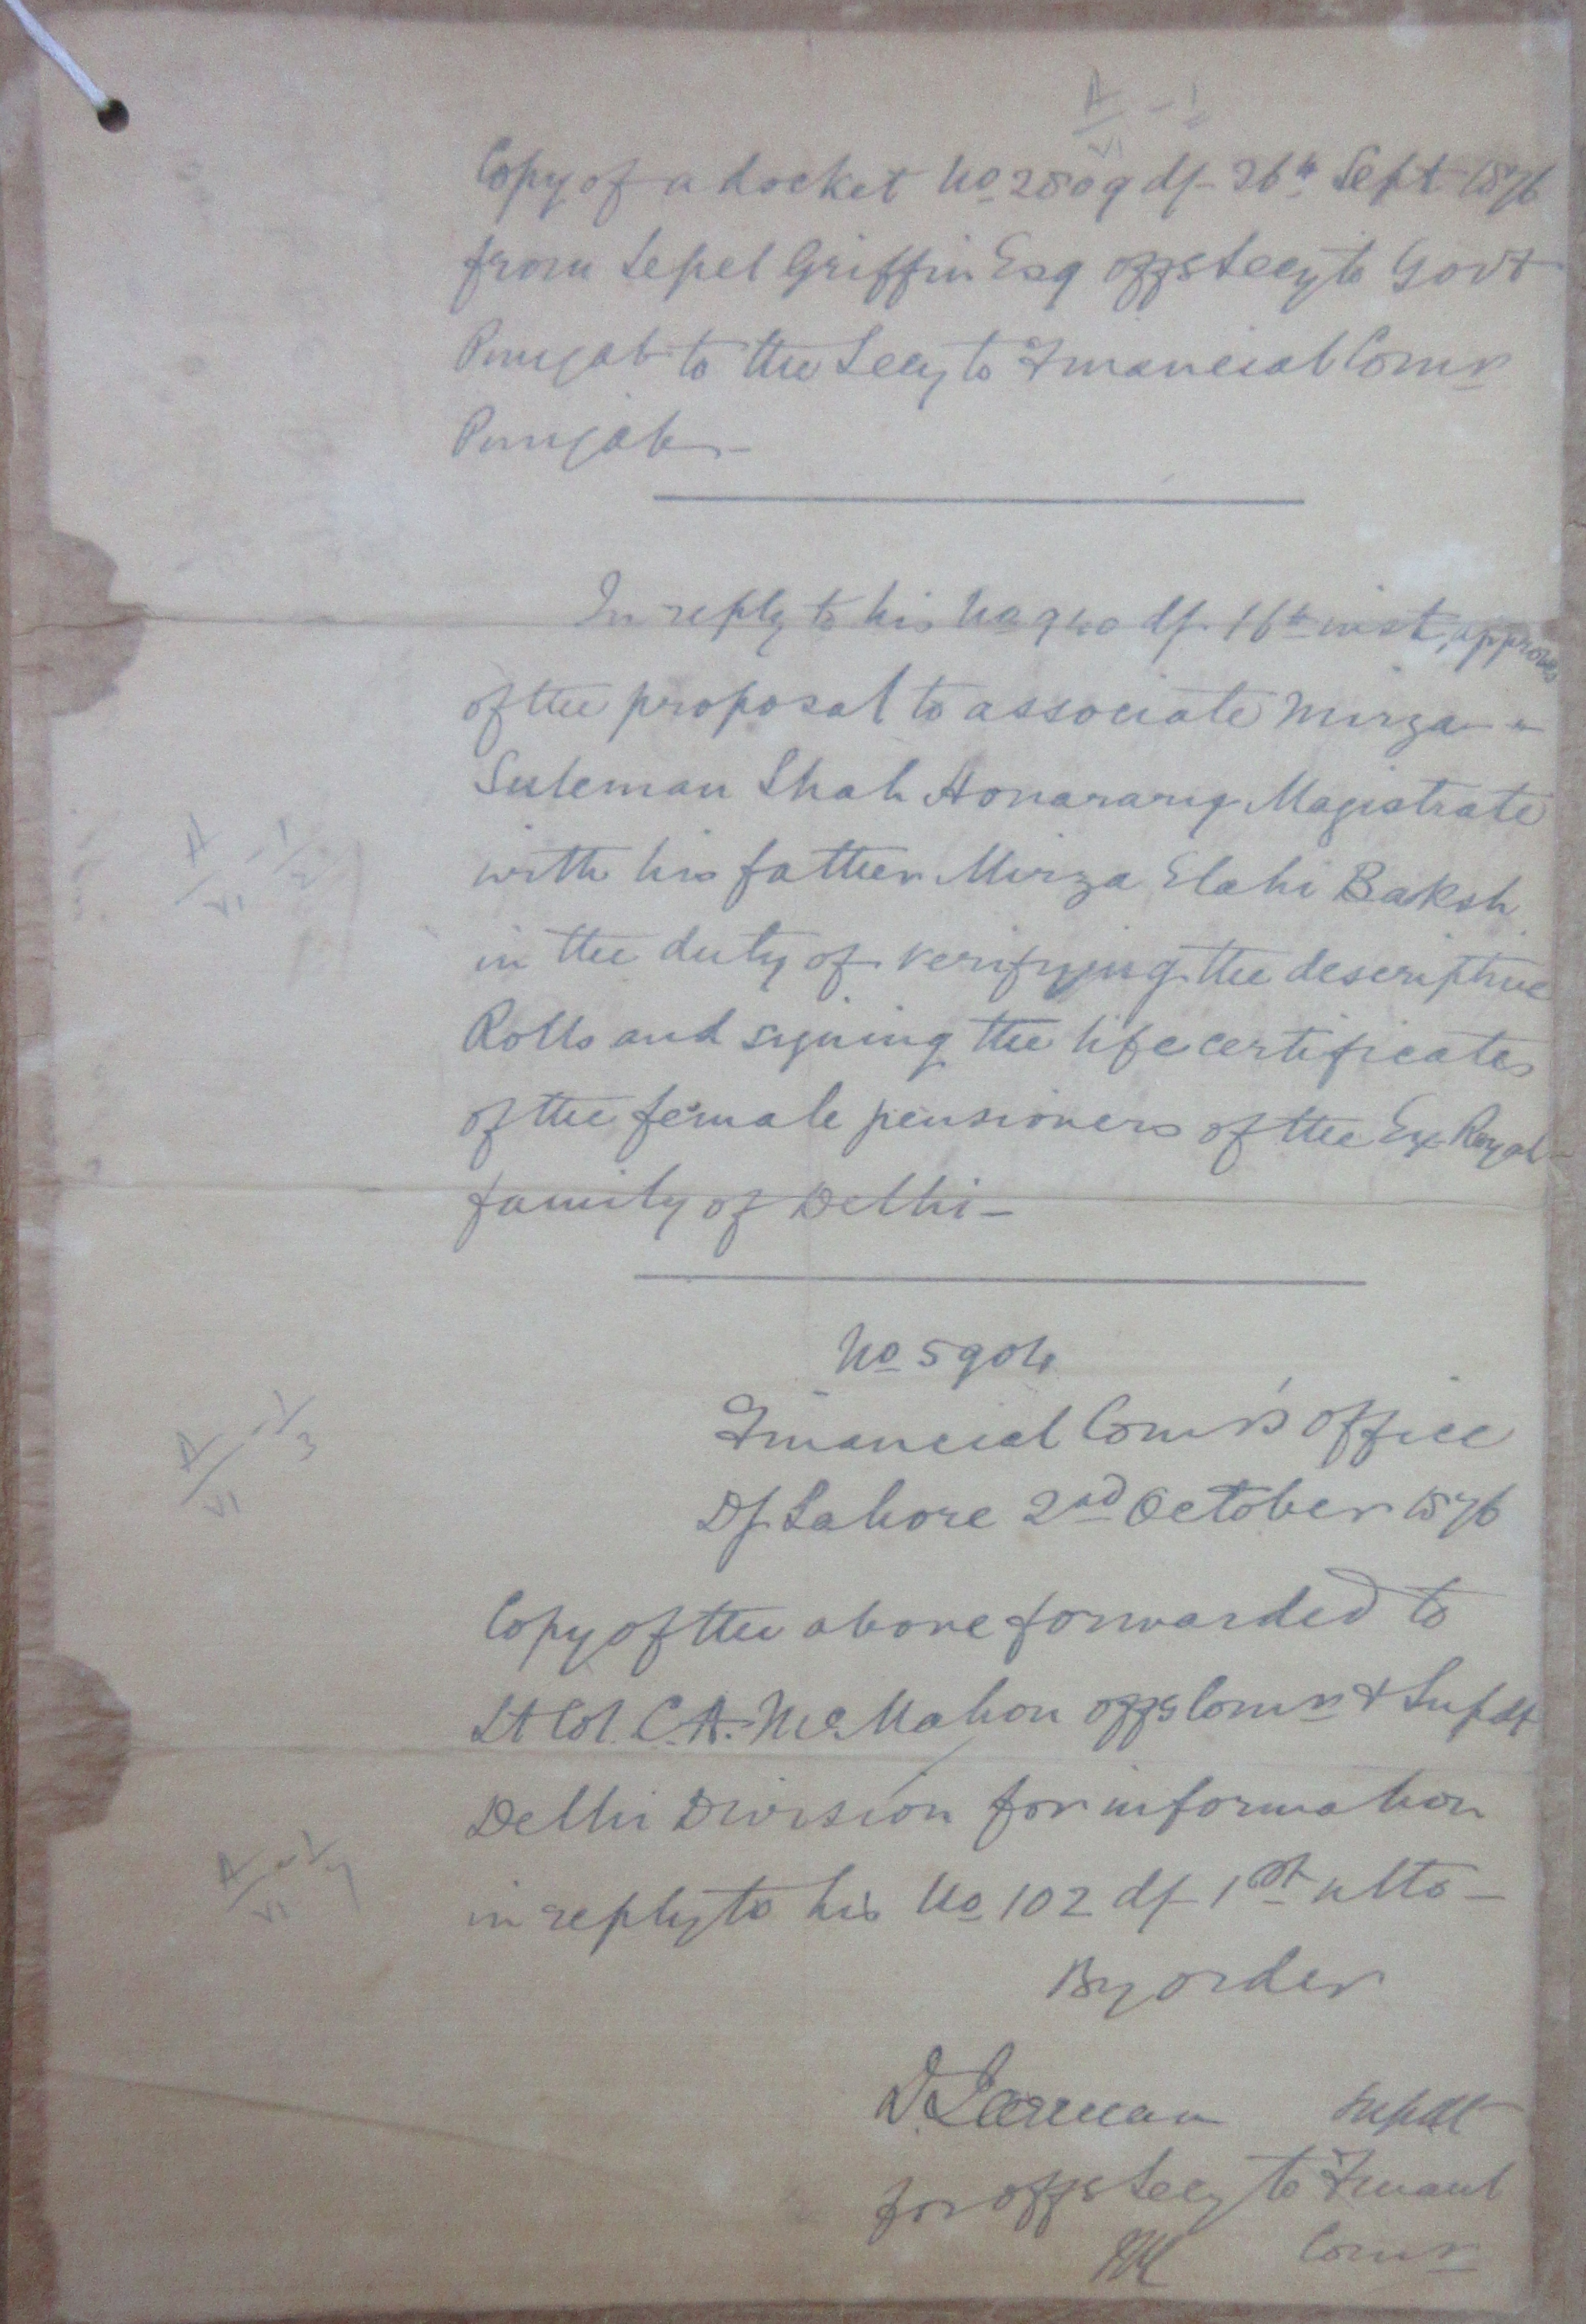 Copy of a docket No 2809 df 26th Sept 1876
from Lepel Griffin Esq offg Secy to Govt
Punjab to the Secy to Financial Comr
Punjab –
In reply to his No 940 df 16th inst, approves
of the proposal to associate Mirza
Suleman Shah Honarary Magistrate
with his father Mirza Elahi Baksh
in the duty of verifying the descriptive
Rolls and signing the life certificates
of the female pensioners of the Ex Royal
family of Delhi –
No 5904
Financial Comr's office
Df Lahore 2nd October 1876
Copy of the above forwarded to
Lt Col. C.A. McMahon offg Comr & Supdt
Delhi Division for information
in reply to his No 102 df 1st ulto –
By order
D. Supdt
for offg Secy to Financl
Comr
A/VI - 1/2
A/VI - 1/3